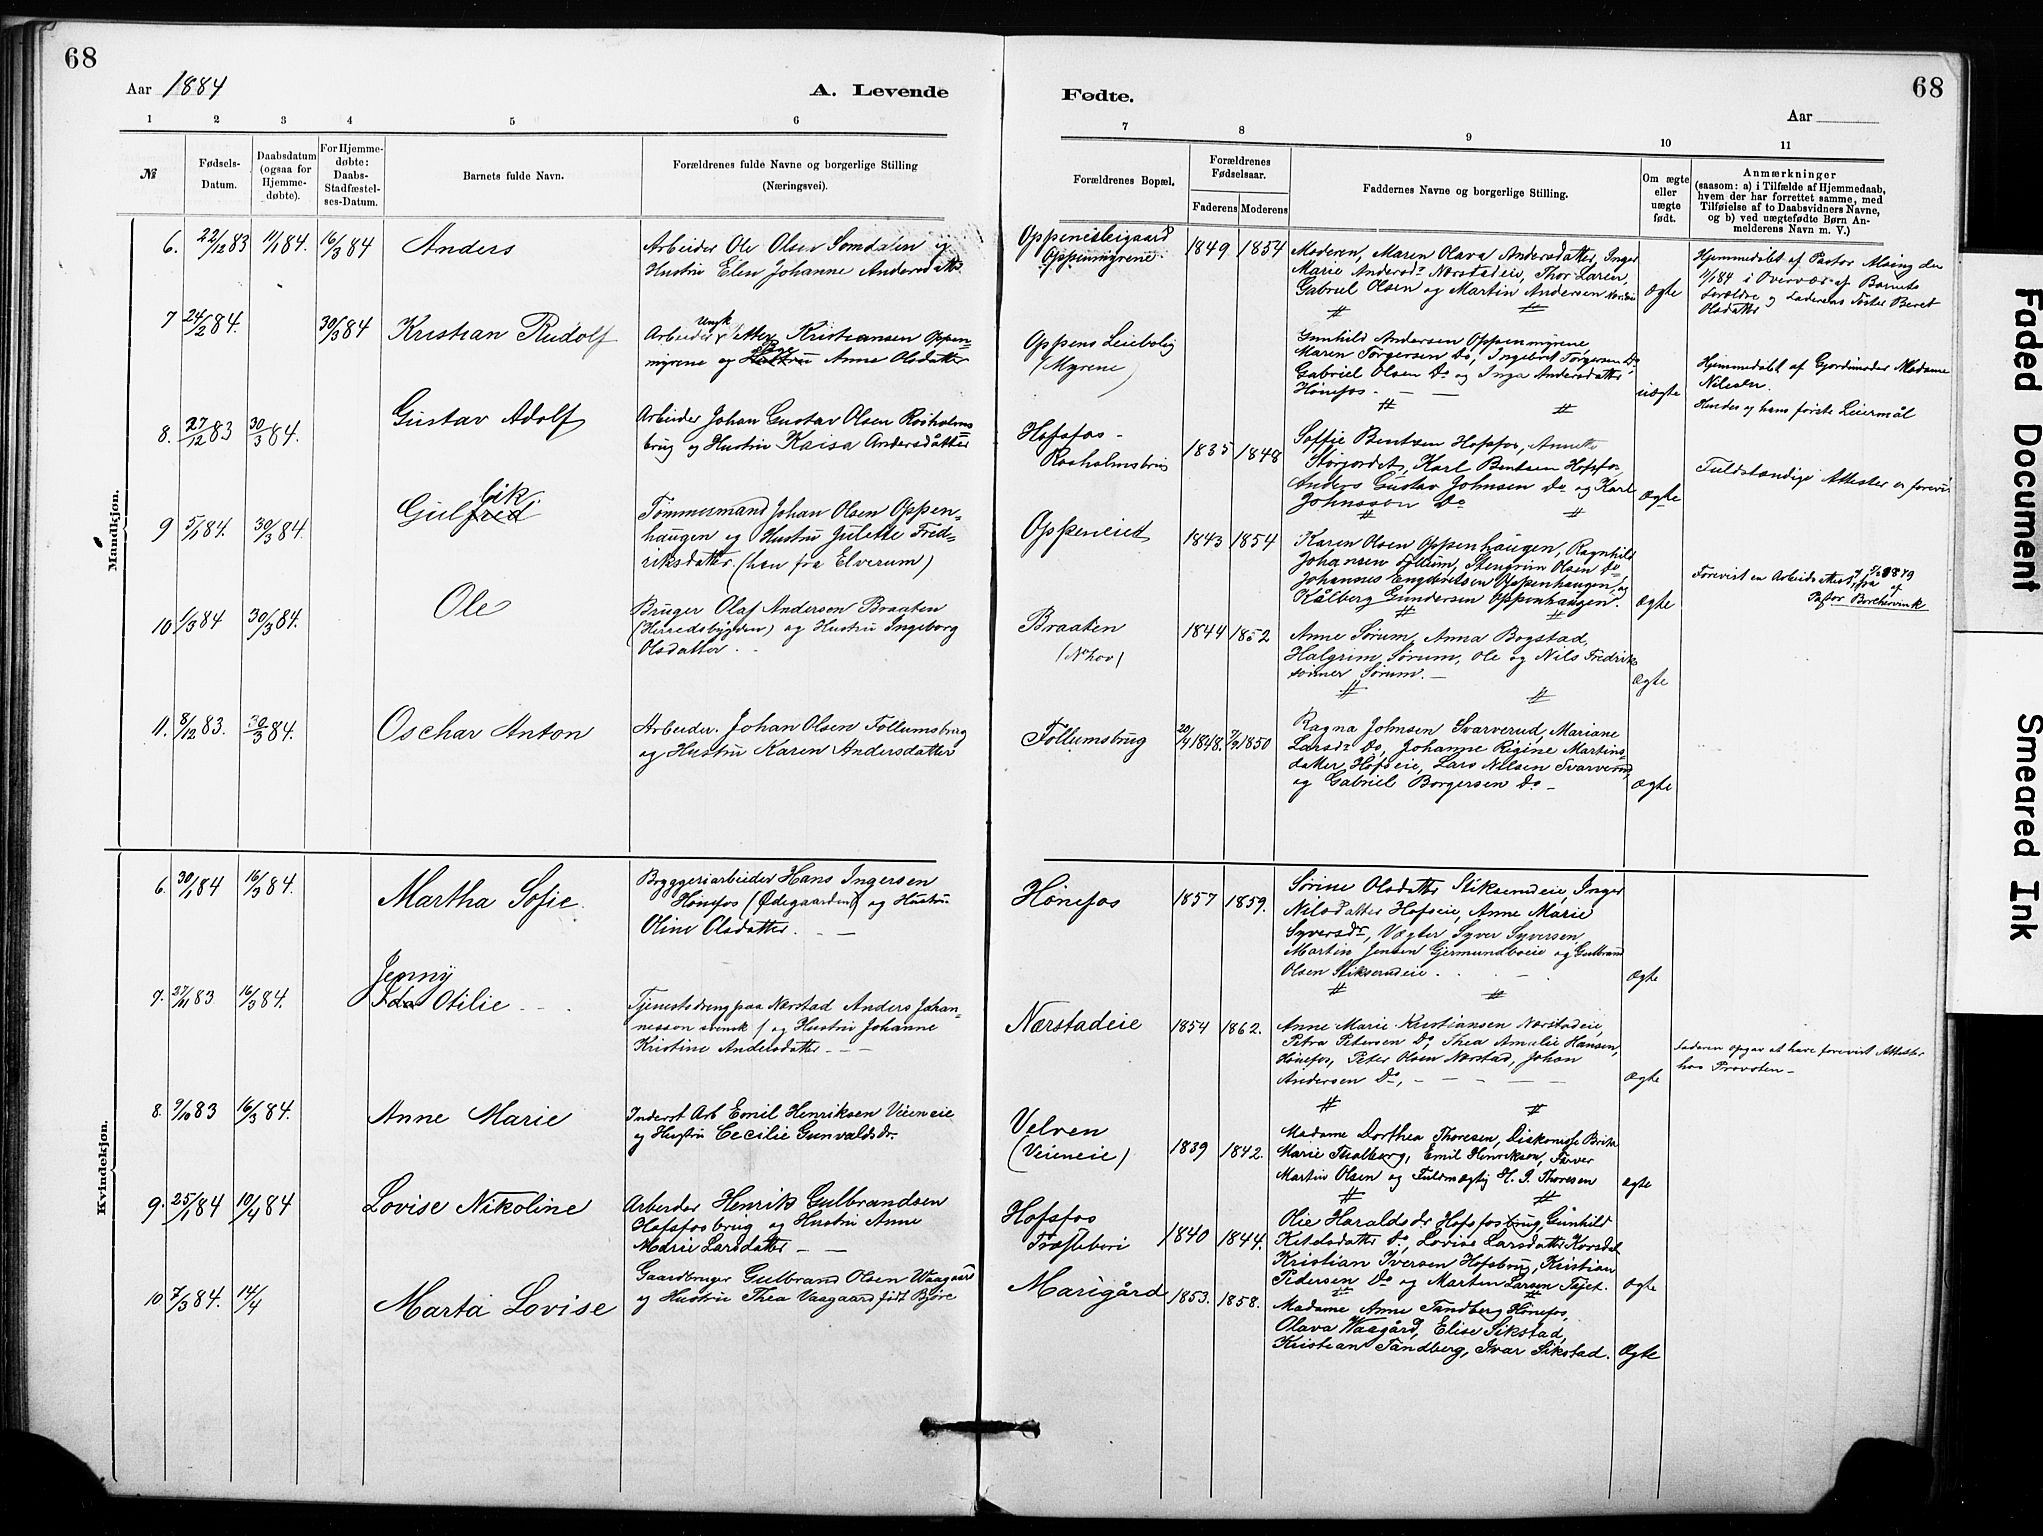 68
68
Aar 1884
A. Levende
Fødte.
Aar
1 2 3 4 5 6 7 8 9 10 11
№
Fødsels-
Datum.
Daabsdatum
(ogsaa for
Hjemme-
døbte).
For Hjemme-
døbte:
Daabs-
Stadfæstel-
ses-Datum.
Barnets fulde Navn.
Forældrenes fulde Navne og borgerlige Stilling
(Næringsvei).
Forældrenes Bopæl.
Forældrenes
Fødselsaar.
Faderens Moderens
Faddernes Navne og borgerlige Stilling.
Om ægte
eller
uægte
født.
Anmærkninger
(saasom: a) i Tilfælde af Hjemmedaab,
hvem der har forrettet samme, med
Tilføielse af to Daabsvidners Navne,
og b) ved uægtefødte Børn An-
melderens Navn m. V.)
Mandkjøn.
6. 22/12 83 11/1 84. 16/3 84 Anders
Arbeider Ole Olsen Somdalen og
Hustru Elen Johanne Andersdatter
Oppeneieigaard
Oppenmyrene
1849 1854
Moderen, Maren Olava Andersdatter, Inger
Marie Andersdr Nærstadeie, Thor Larsen,
Gabriel Olsen og Martin Andersen
Ægte
Hjemmedøbt af Pastor Alsing den
11/1 84 i Overvær af Barnets
Forældre og Faderens Søster Beret
Olsdatter
7 24/2 84. 30/3 84 Kristian Rudolf
Arbeider Ungk Petter Kristiansen Oppen-
myrene og Pige Anne Olsdatter
Oppens Leiebolig
(Myrene)
Gunhild Andersen Oppenmyrene
Maren Torgersen Do, Ingebret Torgersen Do,
Gabriel Olsen Do og Inga Andersdatter
Hønefos. - - -
uægte
Hjemmedøbt af Gjordmoder Madame
Nilsen.
Hendes og hans første Leiermål
8. 27/12 83 30/3 84. Gustav Adolf
Arbeider Johan Gustav Olsen Rosholms-
brug og Hustru Kaisa Andersdatter
Hofsfos -
Rosholmsbrug
1835 1848
Soffie Bentsen Hofsfos, Annette
Storjordet, Karl Bentsen Hofsfos,
Anders Gustav Johnsen Do og Karl
Johnsson Do
Ægte
Fuldstændige Attester er forevist
9 5/1 84. 30/3 84. Gulik
Tømmermand Johan Olsen Oppen-
haugen og Hustru Julette Fred-
riksdatter (hun fra Elverum)
Oppeneiet
1843 1854
Karen Olsen Oppenhaugen, Ragnhild
Johansen Follum, Stengrim Olsen Do
Johannes Engebretsen Oppenhaugen, og
Kålberg Gundersen Oppenhaugen.
Ægte
Forevist en Arbeidsattest fra
Pastor Borchervink
10 1/3 84 30/3 84. Ole
Bruger Olaf Andersen Braaten
(Herredsbygden) og Hustru Ingeborg
Olsdatter.
Braaten
(Nhov)
1844 1852
Anne Sørum, Anna Bogstad,
Halgrim Sørum, Ole og Nils Fredriks
sønner Sørum. -
Ægte
11. 8/12 83. 30/3 84. Oschar Anton
Arbeider. Johan Olsen Follumsbrug
og Hustru Karen Andersdatter
Follumsbrug
20/4 1848. 7/9 1850
Ragna Johnsen Svarverud, Mariane
Larsdr Do, Johanne Rigine Martins-
datter, Hofseie, Lars Nilsen Svarverud,
og Gabriel Borgersen Do -
Ægte
Kvindekjøn.
6. 30/1 84 16/3 84. Martha Sofie.
Bryggeriarbeider Hans Ingersen
Hønefos (Ødegaarden) og Hustru
Oline Olsdatter. -
Hønefos
1857 1859.
Sørine Olsdatter Stikserudeie, Inger
Nilsdatter Hofseie, Anne Marie
Syversdr, Vægter Syver Syversen,
Martin Jensen Gjermundboeie og Gulbrand
Olsen Stikserudeie.
Ægte
7. 27/11 83 16/3 84. Jenny
Ida Otilie
Tjenestedreng paa Nærstad Anders Johan-
nesson svensk / og Hustru Johanne
Kristine Andersdatter - - -
Nærstadeie
1854 1862.
Anne Marie Kristiansen Nærstadeie,
Petra Petersen Do, Thea Amalie Hansen,
Hønefos, Peter Olsen Nærstad, Johan
Andersen Do, - - - -
Ægte
Faderen opgav at have forevist Attester
hos Provsten -
8. 9/10 83 16/3 84. Anne Marie
Inderst Arb Emil Henriksen Veieneie
og Hustru Cecilie Gunvaldsdr.
Velven
(Veieneie)
1839 1842.
Madame Dorthea Thoresen, Diakonisse Brita
Marie Thalberg, Emil Henriksen, Farver
Martin Olsen og Fuldmægtig H. J. Thoresen
Ægte
9. 25/1 84 10/4 84 Lovise Nikoline
Arbeider Henrik Gulbrandsen
Hofsfosbrug og Hustru Anne
Marie Larsdatter - -
Hofsfos
Træsliberi
1840 1844.
Olie Haraldsdr Hofsfosbrug, Gunhild
Kitelsdatter Do, Lovise Larsdatter Korsdal
Kristian Iversen Hofsbrug, Kristian
Pedersen Do og Marten Larsen Tajet.
Ægte
10 7/3 84. 14/4 Marta Lovise
Gaardbruger Gulbrand Olsen Waagaard
og Hustru Thea Vaagaard født Bjøre
Marigård
1853. 1858.
Madame Anne Tandberg Hønefos,
Olava Waagård, Elise Sikstad,
Kristian Tandberg, Ivar Sikstad.
Ægte
Faded Document
Smeared Ink